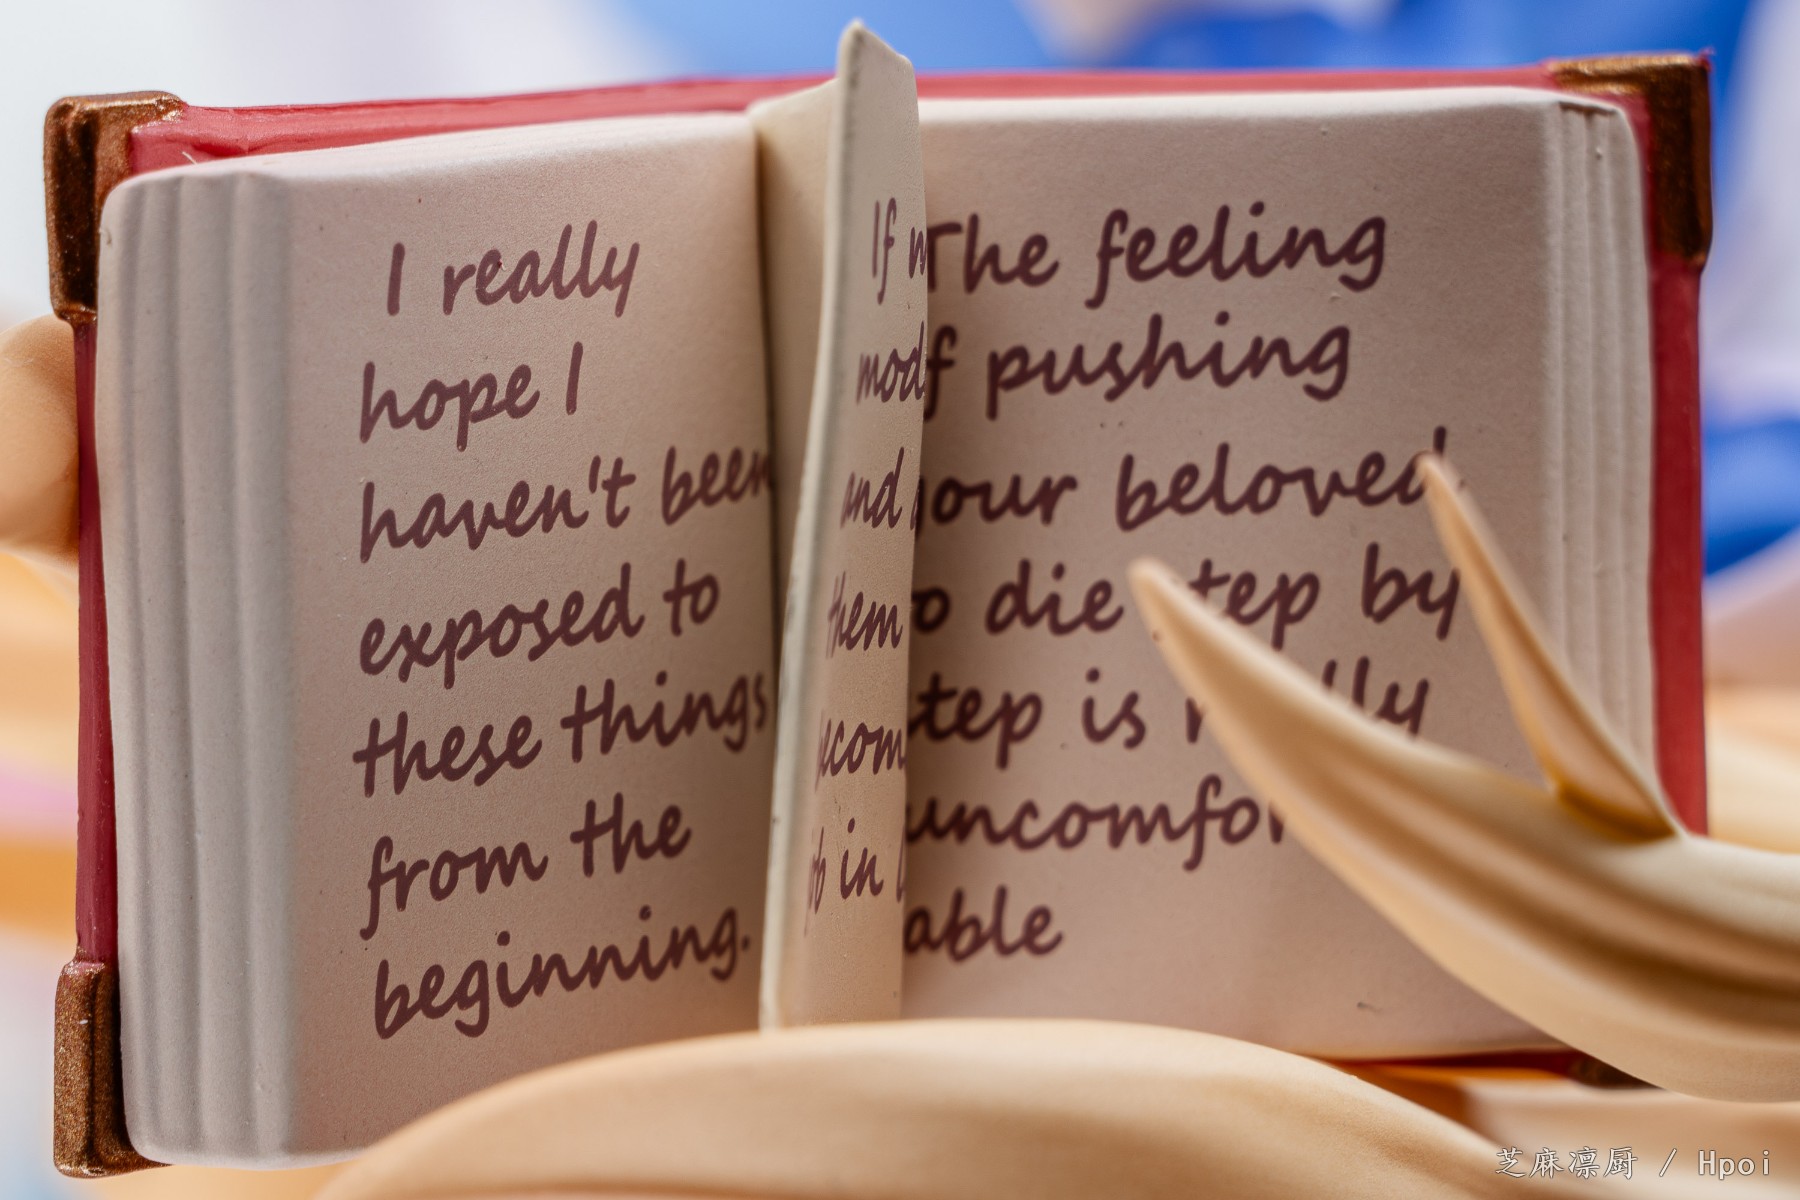 I really
hope I
haven't been
exposed to
these things
from the
beginning.
If
and
them
in
The feeling
pushing
your beloved
to die step by
step is
able
芝麻凛厨 / Hpoi